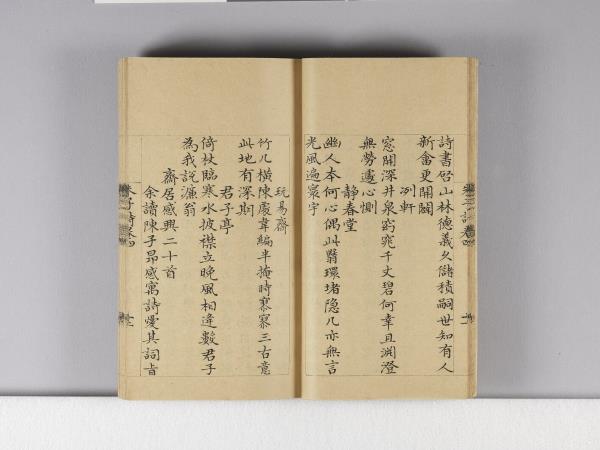 詩書啓山林德義久儲積嗣世知有人
新畬更開闢
冽軒
窓開深井泉窈窕千丈碧何幸且渊澄
無勞遽心惻
静春堂
幽人本何心偶此翳環堵隐几亦無言
光風遍寰宇
玩易齋
竹几橫陳處韋編半掩時寥寥三古意
此地有深期
君子亭
倚杖臨寒水披襟立晚風相逢數君子
為我說濂翁
齋居感興二十首
余讀陳子昂感寓詩愛其詞旨